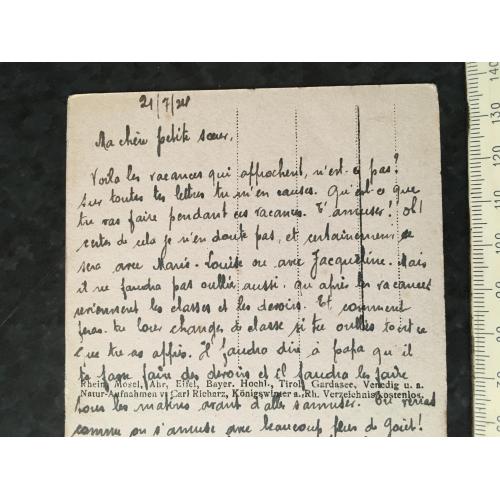 21/7/28
Ma chère petite sœur,
Voilà les vacances qui approchent, n'est-ce pas?
Sur toutes tes lettres tu m'en causes. Qu'est-ce que
tu vas faire pendant ces vacances. T'amuser! Oh!
certes de cela je n'en doute pas, et certainement ce
sera avec Marie-Louise ou avec Jacqueline. Mais
il ne faudra pas oublier aussi qu'après les vacances
reviennent les classes et les devoirs. Et comment
feras-tu lors changes de classe si tu oublies tout ce
que tu as appris. Il faudra dire à papa qu'il
te fasse faire des devoirs et il faudra les faire
Rhein, Mosel, Ahr, Eifel, Bayer. Hochl., Tirol, Gardasee, Venedig u. a.
Natur-Aufnahmen v. Carl Richarz, Königswinter a. Rh. Verzeichnis kostenlos.
tous les matins avant d'aller s'amuser. Tu verras
comme on s'amuse avec beaucoup plus de goût!
140
130
120
110
100
90
80
70